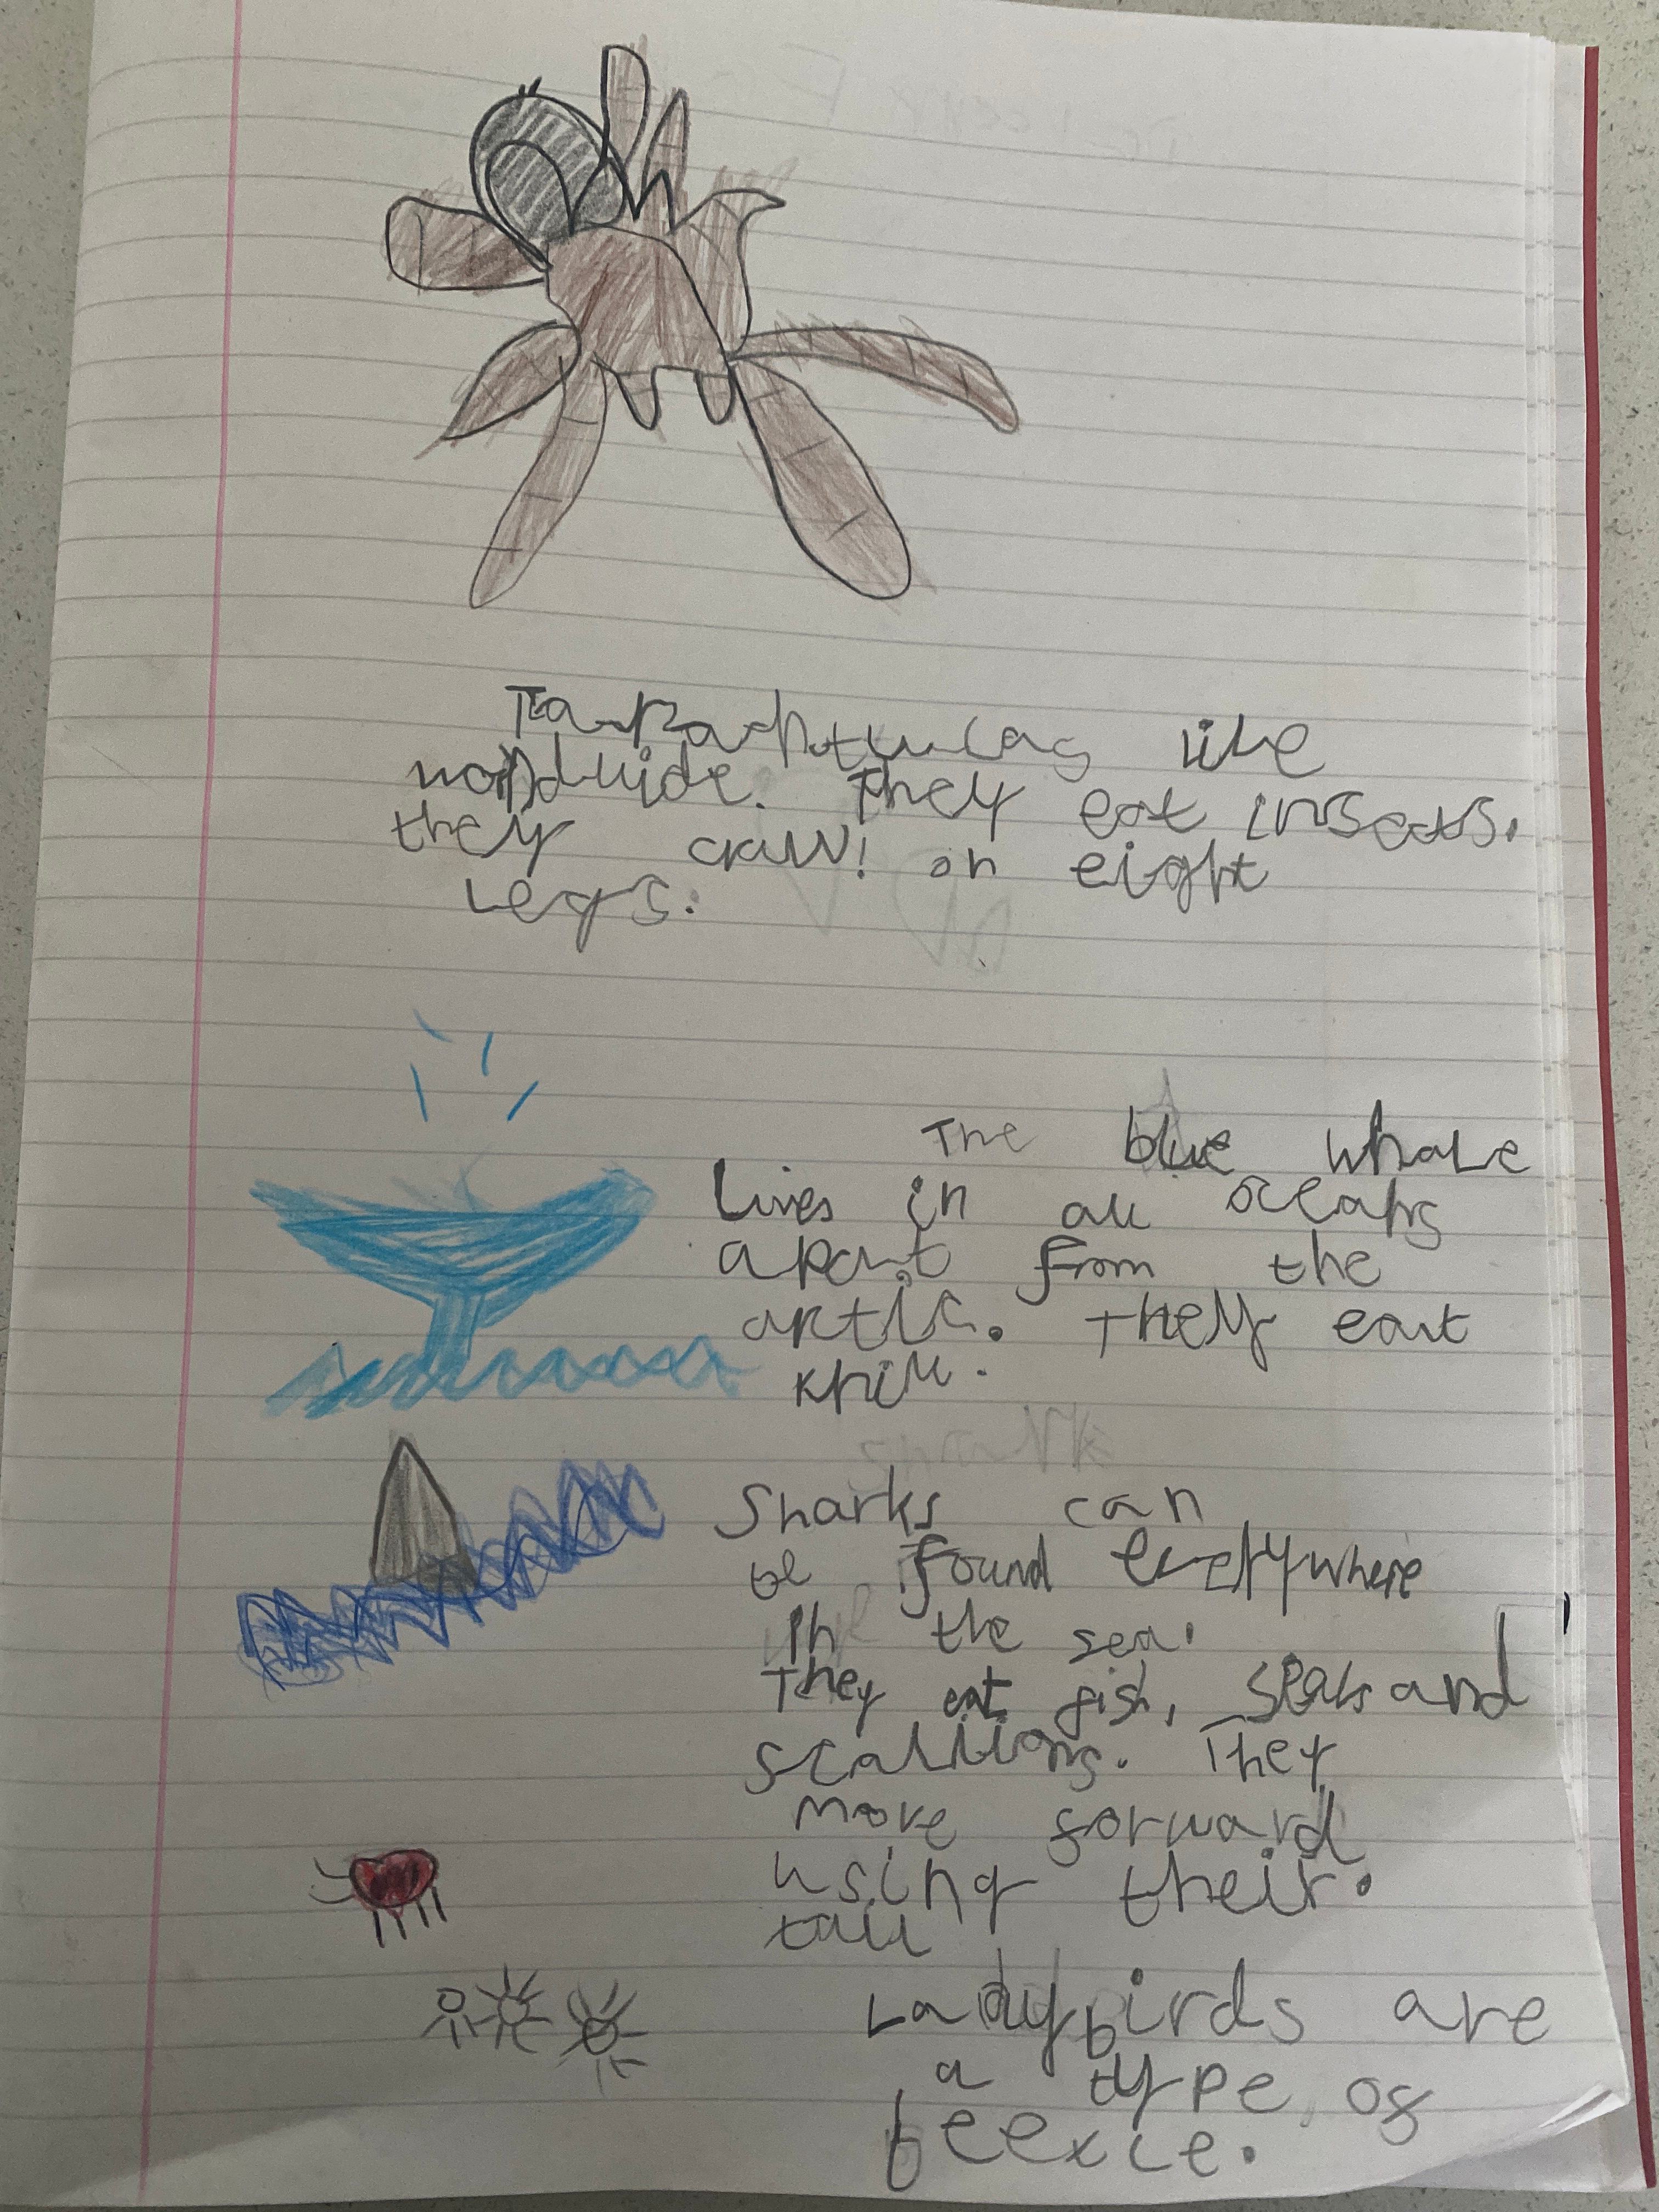 Tarantulas live
worldwide. They eat insects.
they crawl on eight
Legs.
The blue whale
Lives in all oceans
apart from the
artic. They eat
krill.
Sharks can
be found everywhere
in the sea.
They eat fish, seals and
sealions. They
move forward
using their.
tail
Ladybirds are
a type of
beexle.